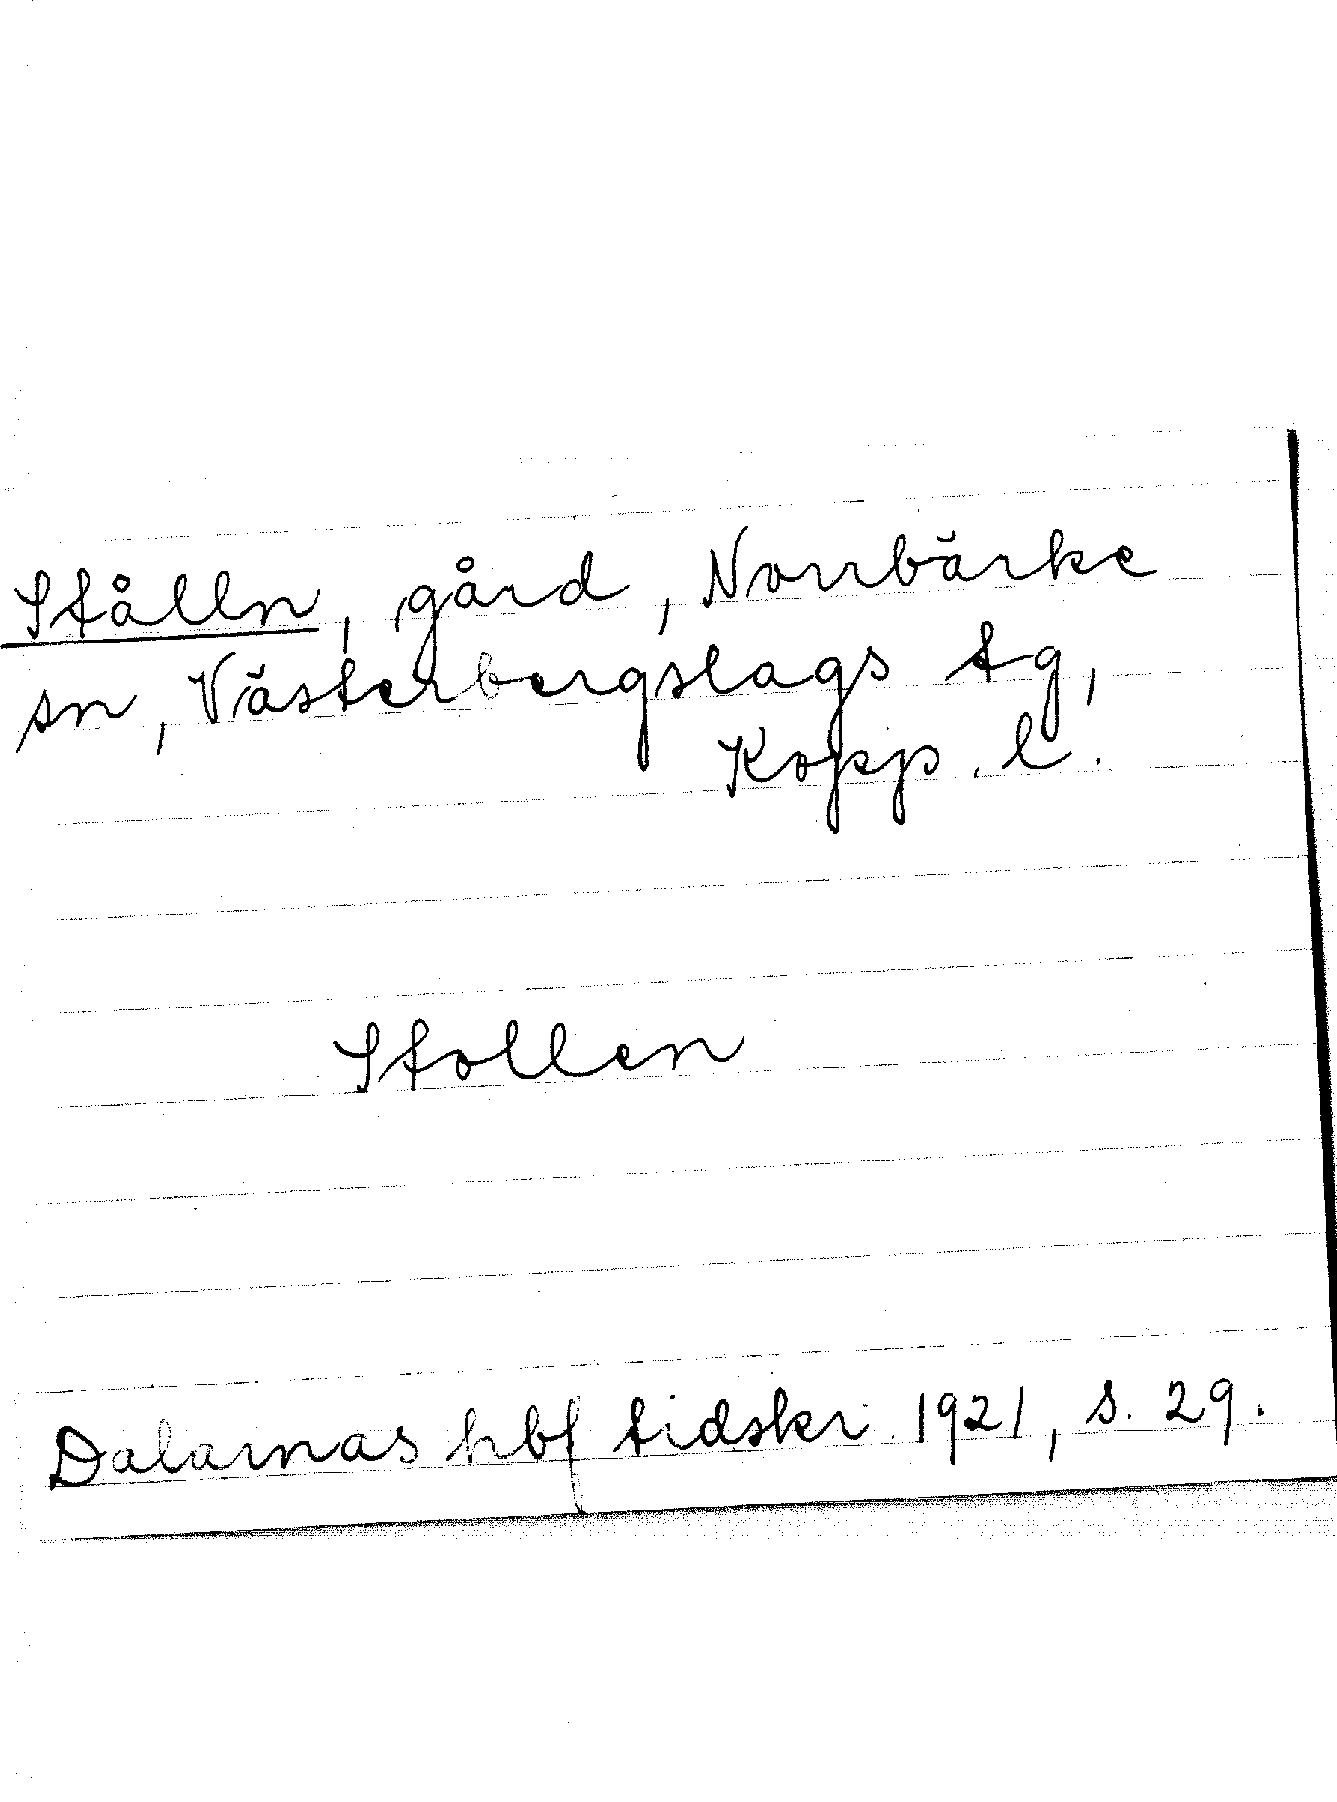 Stålln, gård, Norrbärke
sn, Västerbergslags tg,
Kopp. l.
Stollen
Dalarnas hbf tidskr. 1921, s. 29.